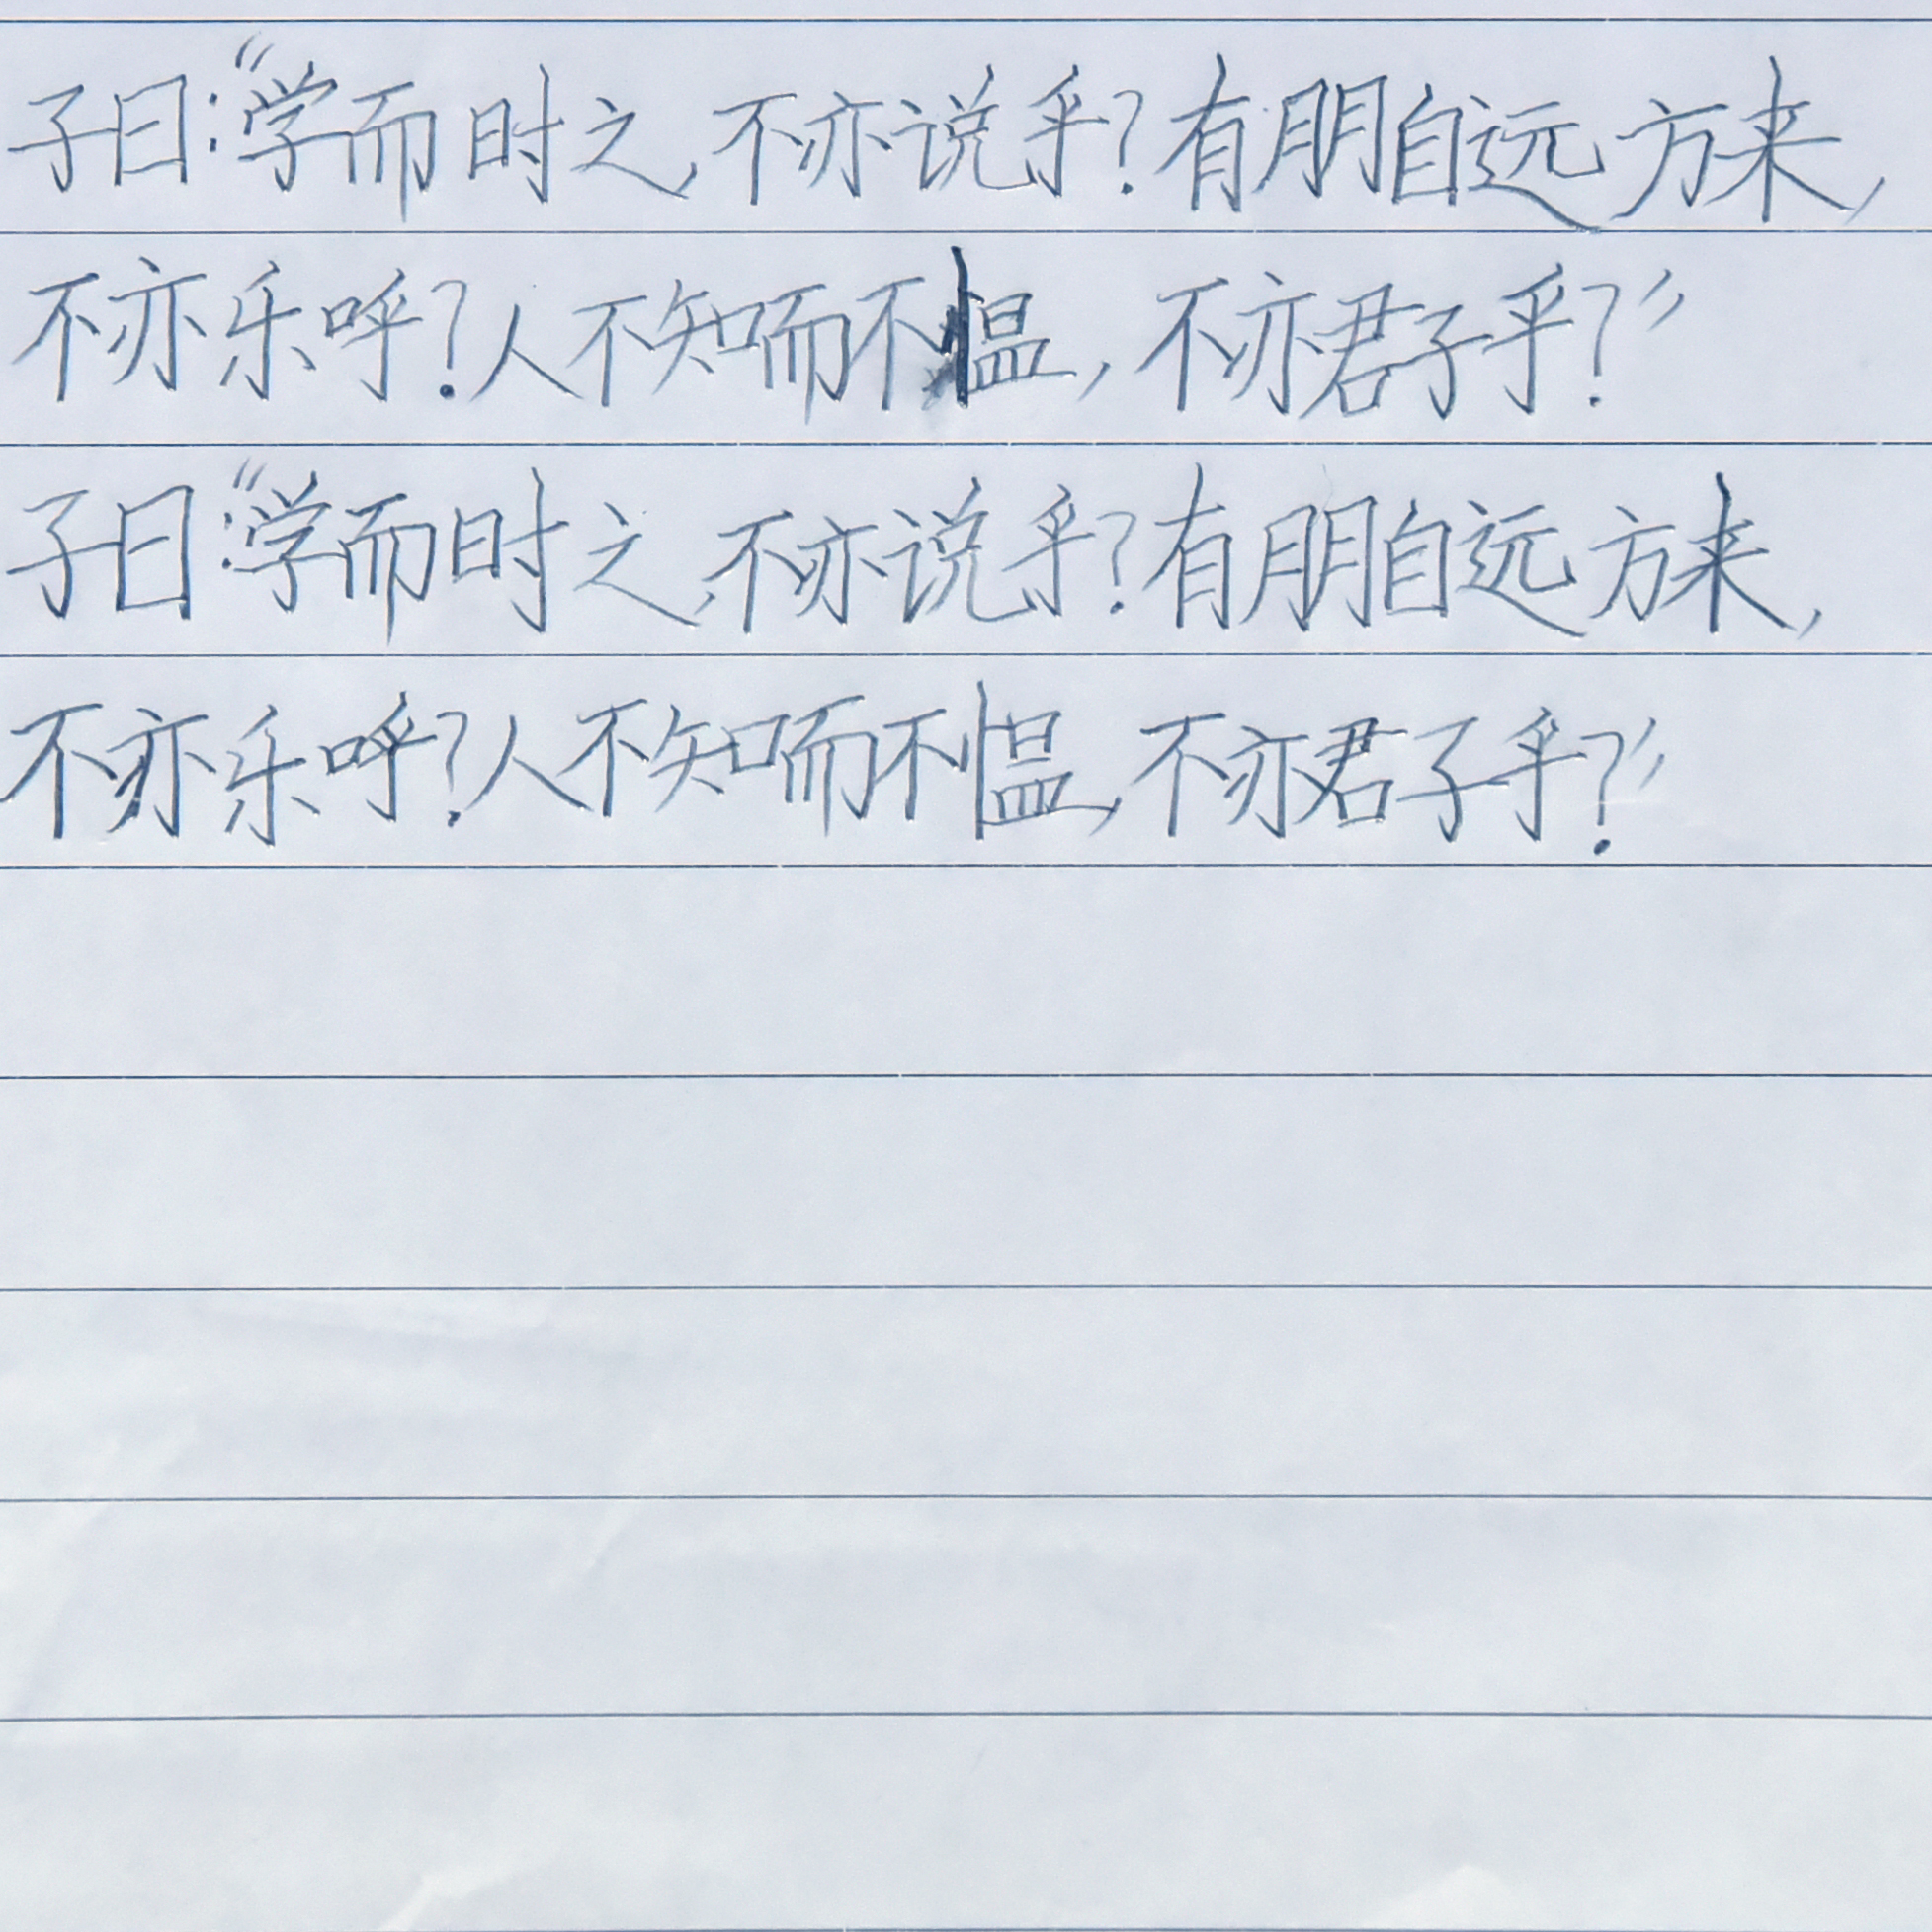 子曰:“学而时之,不亦说乎?有朋自远方来,
不亦乐呼?人不知而不愠,不亦君子乎?”
子曰:“学而时之,不亦说乎?有朋自远方来,
不亦乐呼?人不知而不愠,不亦君子乎?”